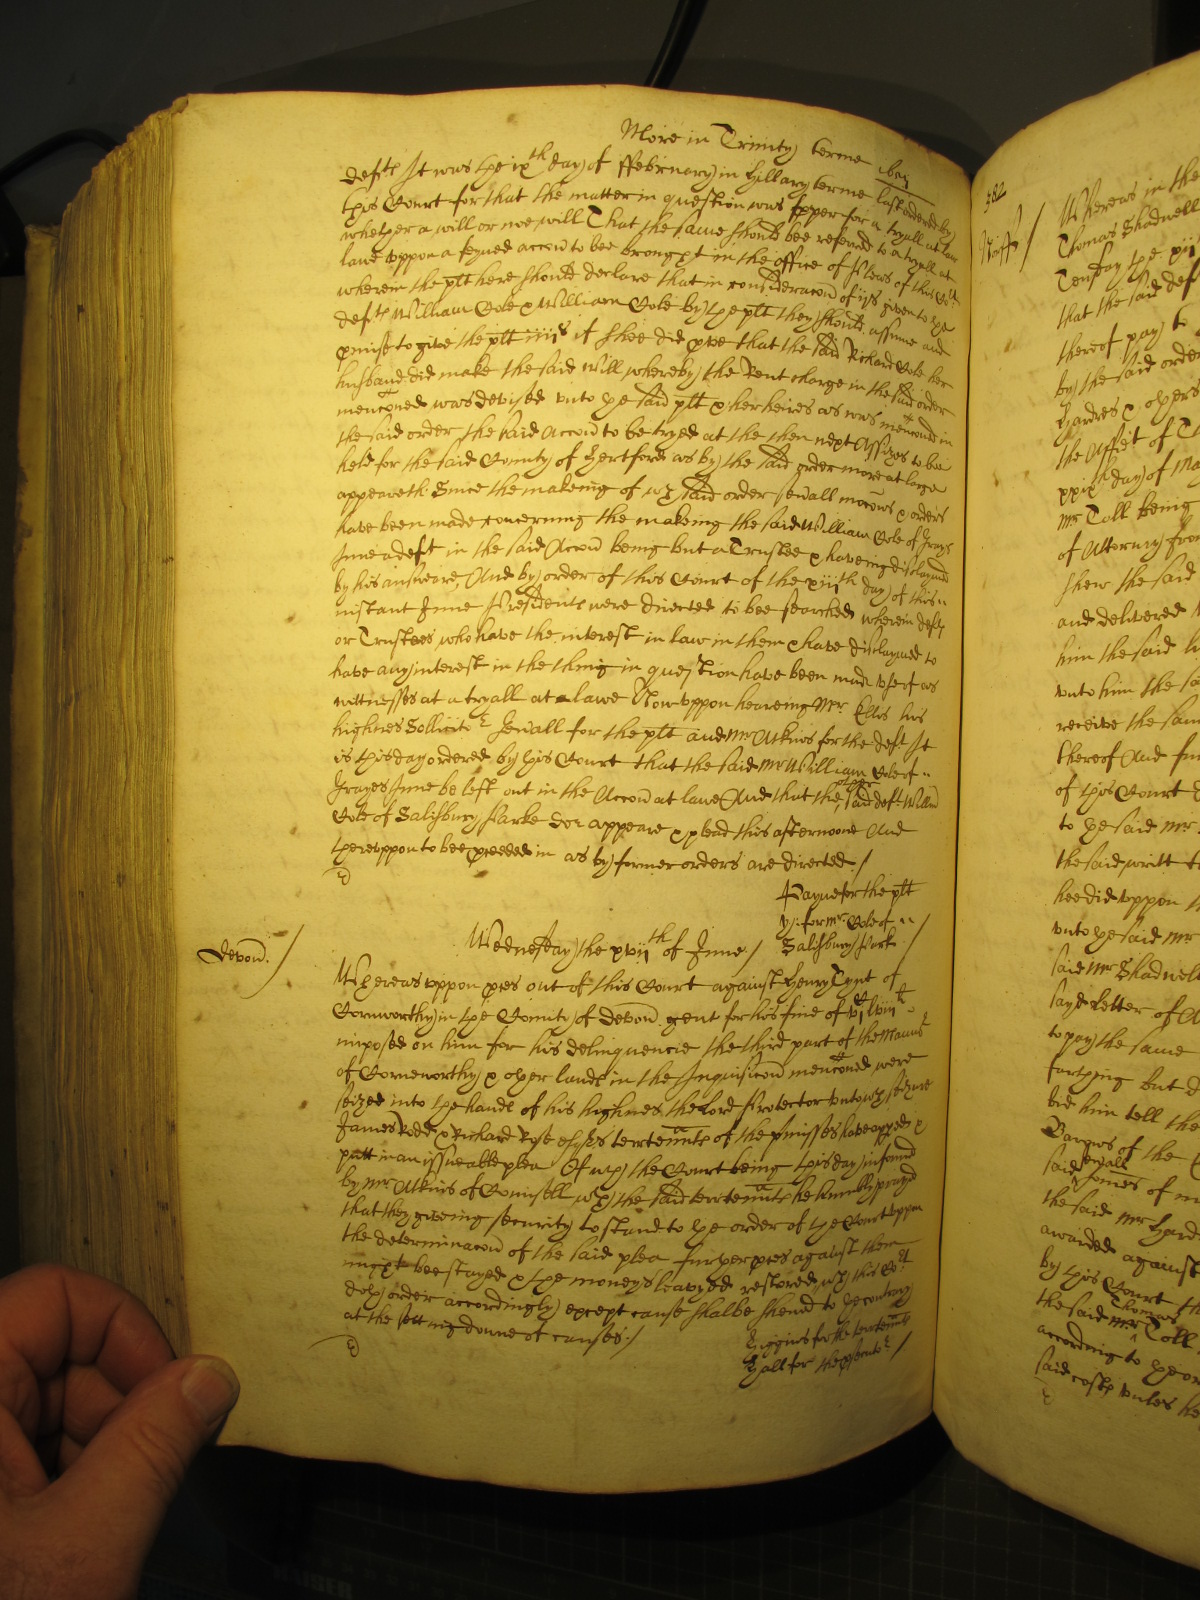 More in Trinity terme 1657
defts It was the ixth day of ffebruary in Hillary terme last ordered by
this Court for that the matter in question was pper for a tryall at law
whether a will or noe will That the same should bee referred to a tryall at
lawe uppon a feyned accon to bee brought in the office of pleas of this Cort
wherein the plt here should declare that in consideracon of ijs given to the
defts William Cole & William Cole by the plt they should assume and
pmise to give the plt iiijs if shee did prve that the said Richard Cole her
husband did make the said Will whereby the Rent charge in the said order
menconed was devised unto the said plt & her heires as was menconed in
the said order the said Accon to be tryed at the then next Assizes to bee
held for the said County of Hertford as by the said order more at large
appeareth Since the makeing of wch said order sevall mocons & orders
have been made concerning the makeing the said William Cole of Grays
Inne a deft in the said Accon being but a Trustee & haveing disclaymed
by his answeare, And by order of this Court of the xiiith day of this
instant June Presidents were directed to bee searched wherein defts
or Trustees who have the interest in law in them & have disclaymed to
have any interest in the thing in question have been made use of as
witnesses at a tryall at lawe Now uppon heareing Mr Ellis his
highnes Sollicitr Genall for the plt and Mr Atkins for the deft It
is this day ordered by this Court that the said Mr William Cole of
Grayes Inne be left out in the Accon at lawe And that the said other deft Willm
Cole of Salisbury Parke doe appeare & plead this afternoone And
thereuppon to bee pceeded in as by former orders are directed /
Payne for the plt
for Mr Cole of
Salisbury Parke /
Wednesday the xviith of June /
Devon /
Whereas uppon pces out of this Court against Henry Tynt of
Cornworthy in the County of Devon gent for his fine of
imposed on him for his delinquencie the third part of the Mannor
of Corneworthy & other lands in the Inquisicon menconed were
seized into the hands of his highnes the Lord Protector unto wch seizure
James Rodd & Richard Rose Esqrs tertenants of the pmisses have appeared &
putt in an issueable plea Of wch the Court being this day informed
by Mr Atkins of Councell wth the said tertenants he humbly prayed
that they giveing security to stand to the order of the Court uppon
the determinacon of the said plea further pces against them
might bee stayed & the moneys leavyed restored wch this Cort
doth order accordingly except cause shalbe shewed to the contrary
at the setting downe of causes /
Higgins for the tertenants
Hall for the
382
Staff /
Whereas in the
Thomas Shadwell
Tensday the xii
that the said def
thereof pay to
by the said order
Hardres & others
the Affidt of T
xxixth day of Ma
Mr Toll being
of Attorney from
shew the said
and delivered
him the said
unto him the sa
receive the sam
thereof And fur
of this Court
to the said Mr
the said writt t
hee did uppon
unto the said Mr
said Mr Shadwell
sayd Letter of A
to pay the same
farthing but d
bid him tell the
Barons of the
said sevall somes of m
the said Mr Hard
awarded against
by this Court
the said Mr Thomas Toll
according to the or
said costs unles he